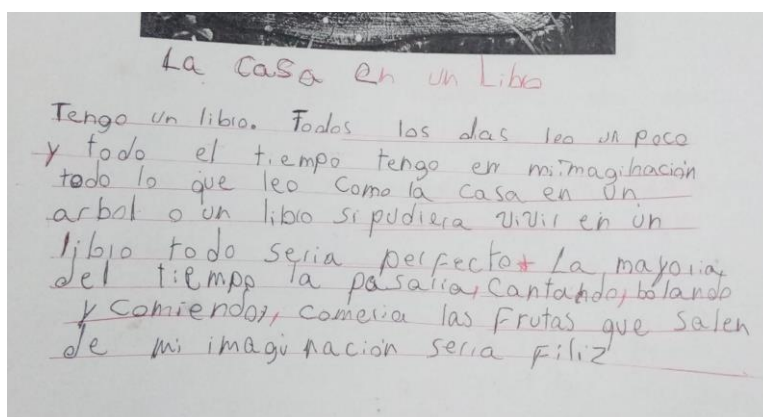 La casa en un Libro
Tengo un libro. Todos los dias leo un poco
y todo el tiempo tengo en mi imaginación
todo lo que leo como la casa en un
arbol o un libro si pudiera vivir en un
libro todo seria perfecto. La mayoria,
del tiempo la pasaria, cantando, bolando
y comiendo, comeria las frutas que salen
de mi imaginación seria Filiz